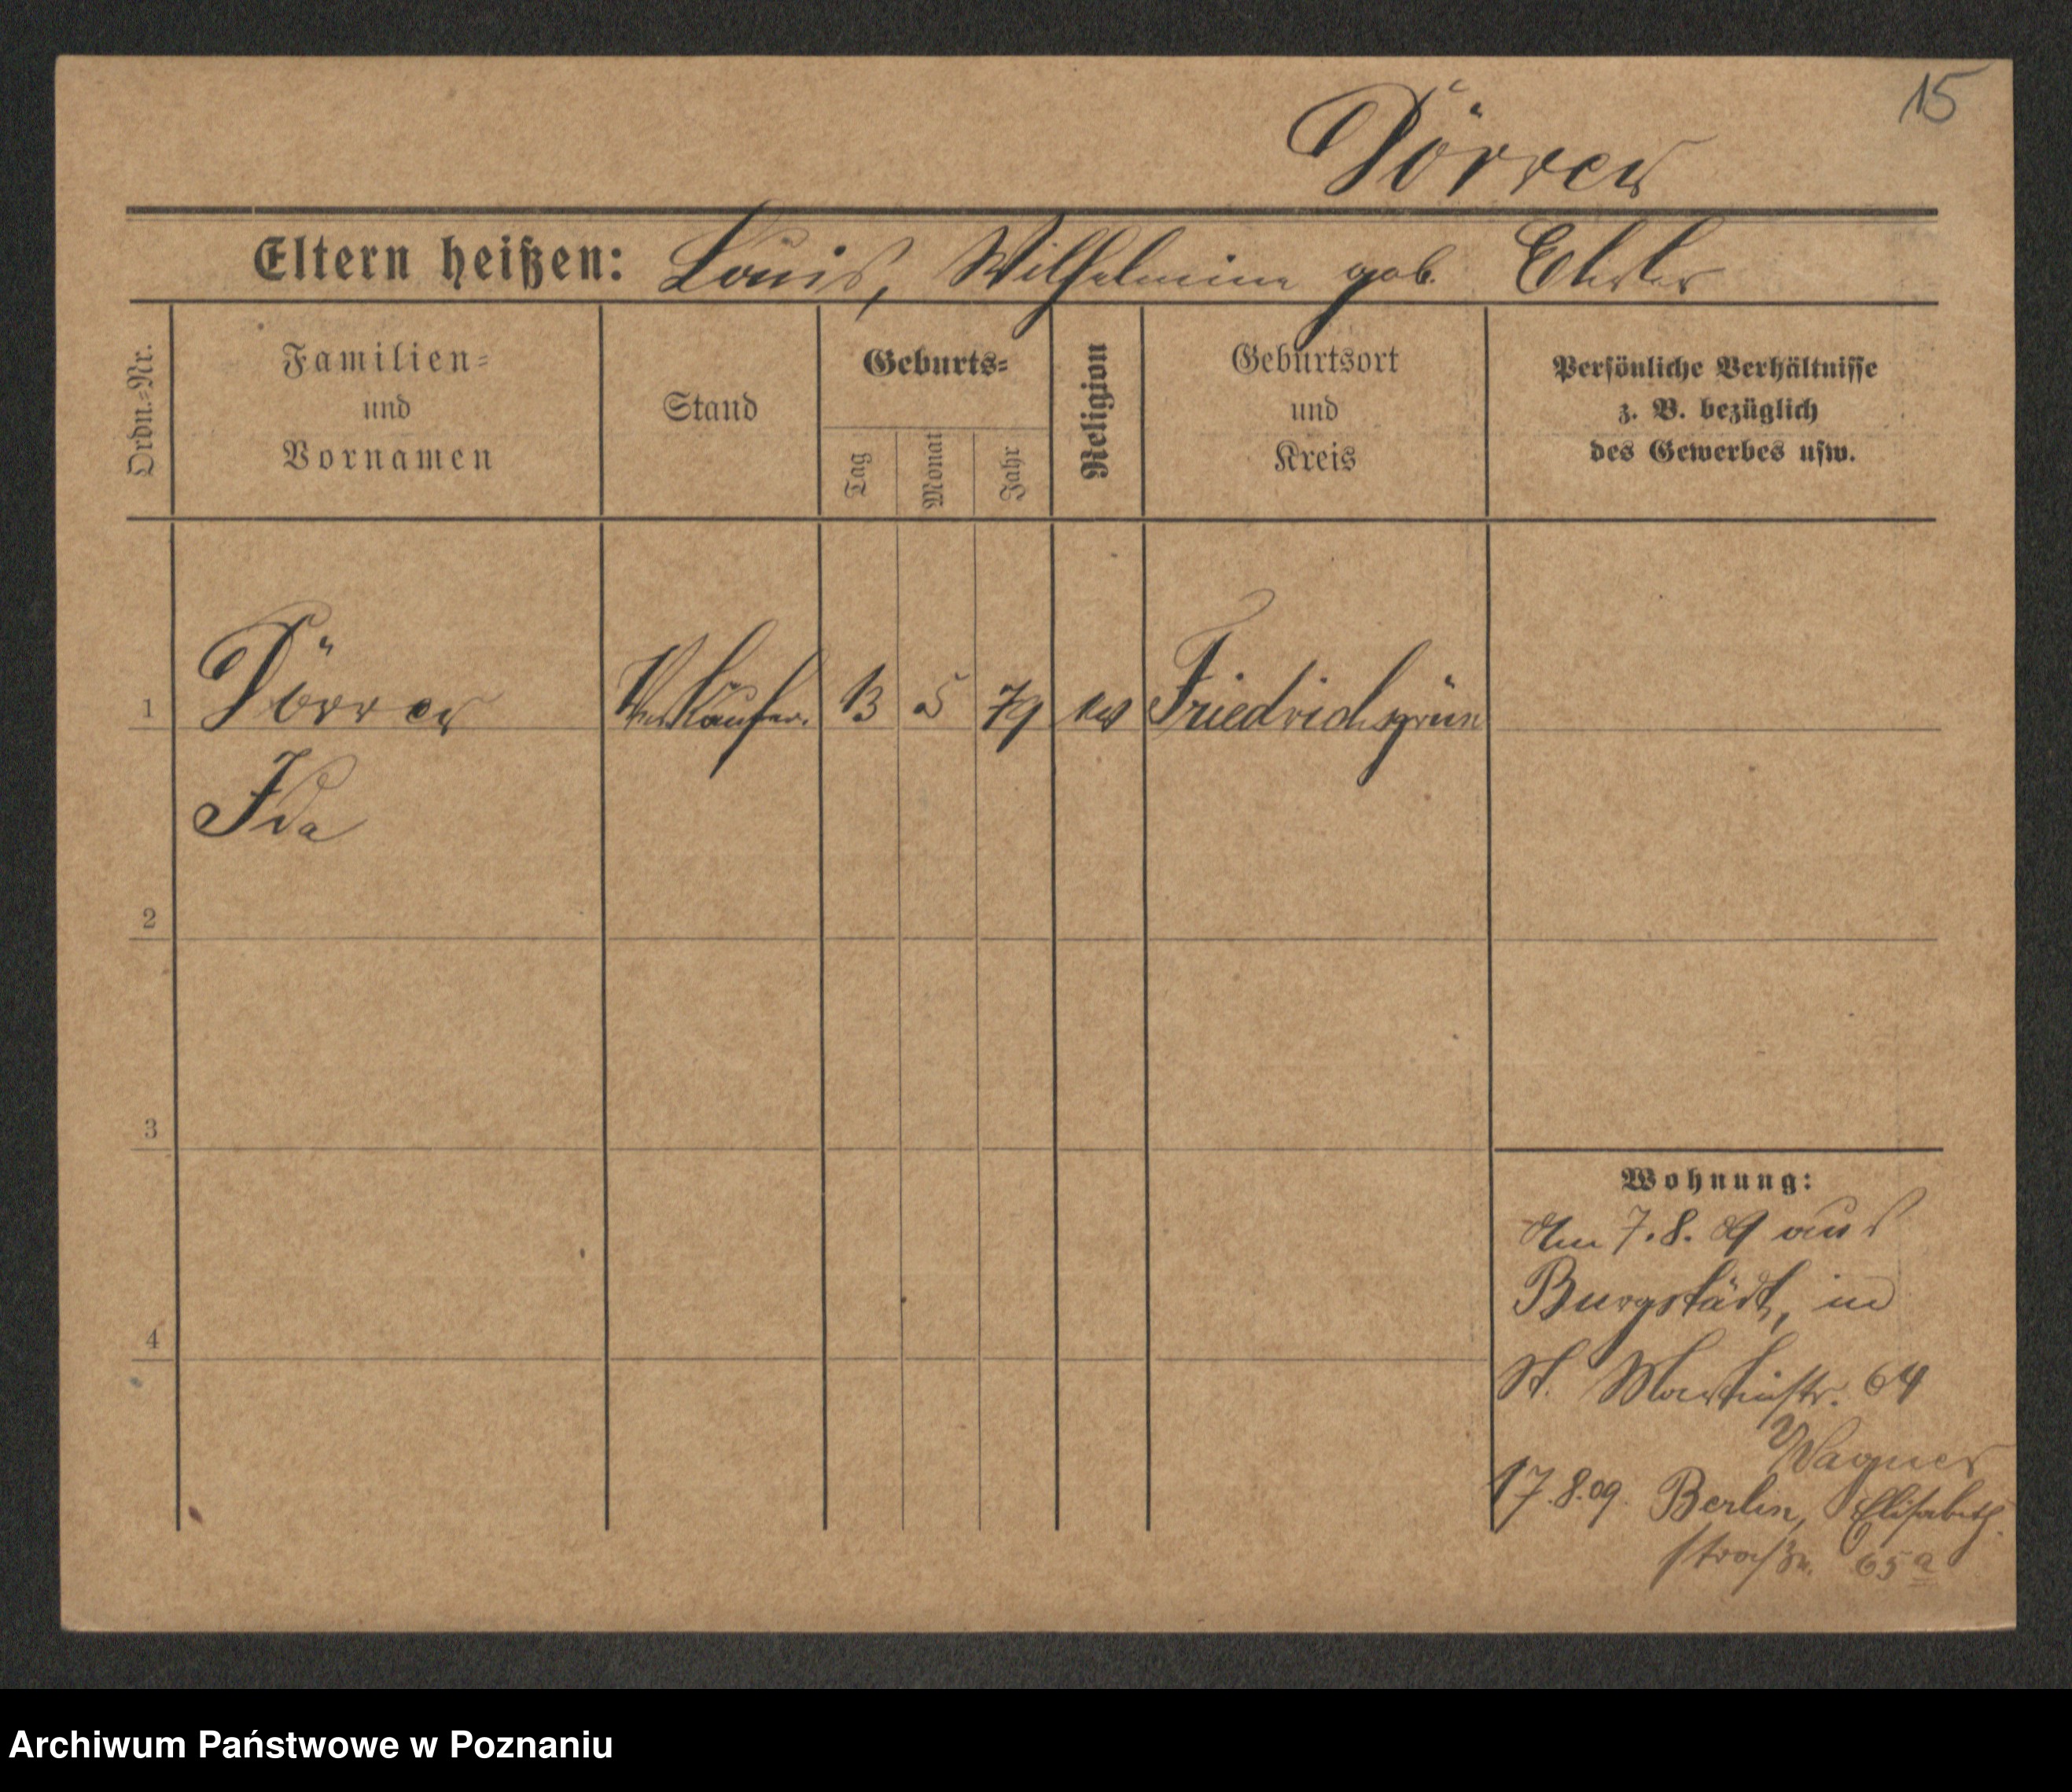 15
Dörrer
Eltern heißen: Louis, Wilhelmine geb.
Ordn.-Nr.
Familien-
und
Vornamen
Stand
Geburts-
Tag
Monat
Jahr
Religion
Geburtsort
und
Kreis
Persönliche Verhältnisse
z. B. bezüglich
des Gewerbes usw.
1 Dörrer Verkäufer. 13 5 79 Friedrichsgrün
Ida
2
3
4
Wohnung:
Am 7.8.09 aus
Burgstädt, in
St. Martinstr. 64
Wagner
17.8.09. Berlin, Elisabeth-
straße 65a
Archiwum Państwowe w Poznaniu